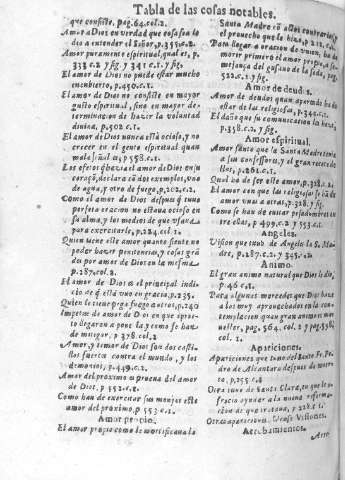 Tabla de las cosas notables.
que consiste, pag.64.col.2.
Amor a Dios en verdad que cosa sea lo
dio a entender el Señor, p.355.c.2.
Amor puramente espiritual, qual es, p.
338 c.2 y sig y 341 c.1. y sig.
El amor de Dios no puede estar mucho
encubierto, p.450.c.1.
El amor de Dios no consiste en mayor
gusto espiritual, sino en mayor de-
terminacion de hazer la voluntad
divina, p.502 c.1.
El amor de Dios nunca està ocioso, y no
crecer en el gento espiritual quan
mala señal es, p 558.c.1.
Los efetos haze el amor de Dios en su
coraçõ, declara cõ dos exemplos, uno
de agua, y otro de fuego, p.202.c.2.
Como el amor de Dios despues q̃ tuvo
perfeta oracion no estava ocioso en
su alma, y los medios de que usava
para exercitarlo, p.284.col.1.
Quien tiene este amor quanto siente no
poder hazer penitencia, y cosas grã
des por amor de Dios en la mesma
p.287.col.2.
El amor de Dios es el principal indi-
cio de q̃ està vno en gracia, p.235.
Quien le tiene pega fuego a otros, p.240
Impetus de amor de Dios en que aprie-
to llegaron a pone la y como se han
de mitigar, p 378.col.2
Amor, y temor de Dios son dos casti-
llos fuertes contra el mundo, y los
demonios, p.449.c.2.
Amor del proximo es prueva del amor
de Dios, p 552.c.2.
Como han de exercitar sus monjas este
amor del proximo, p 553 c.1.
Amor propio.
El amor propio como le mortificava la
Santa Madre cõ actos contrarios, y
el provecho que la hizo, p 212. c.1.
Para llegar a oracion de union, ha de
morir primero el amor propio, a se-
mejança del gusano de la seda, pag.
522.c.1. y sig.
Amor de deudos.
Amor de deudos quan apartado ha de
estar de las religiosas, p 349.c.1.
El daño que su comunicacion las haze,
p.358.c.2. y sig.
Amor espiritual.
Amor santo que la Santa Madre tenia
a sus confessores, y el gran recato de
llos, p.261.c.1.
Qual ha de ser este amor, p.328.c.2.
El amor con que las religiosas se han de
amar unas a otras, p.328. y sig.
Como se han de evitar pesadumbres en
tre ellas, p 499.c.2 y 553.c.1.
Angeles.
Vision que tuvo de Angeles la S. Ma-
dre, p.287.c.2. y 345.c.2.
Animo.
El gran animo natural que Dios le dio,
p 46.c.2.
Para algunas mercedes que Dios haze
a los muy aprovechados en la con-
templacion quan gran animo es me-
nester, pag, 564. col. 2 y pag. 586.
col. 1.
Apariciones.
Apariciones que tuvo del Santo Fr. Pe-
dro de Alcantara despues de muerto
p,255 c.2
Otra tuvo de Santa Clara, en que le o-
frecio ayudar a la nueva reforma-
cion de que tratava, p 228.c.1.
Otras apariciones. Vease Visiones.
Arrobamientos.